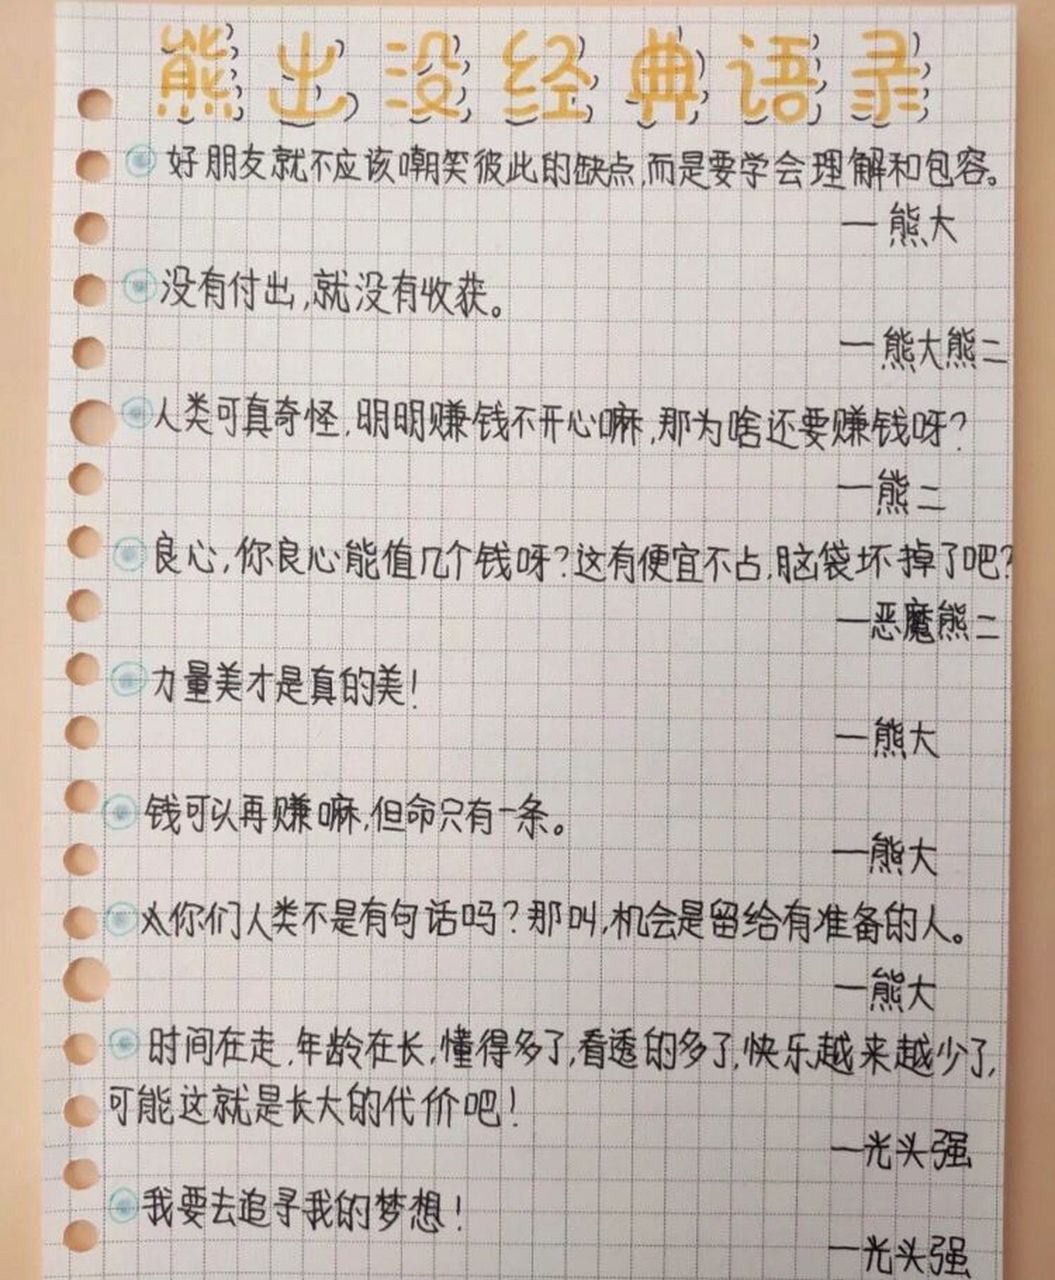 熊出没经典语录
好朋友就不应该嘲笑彼此的缺点,而是要学会理解和包容。
一熊大
没有付出,就没有收获。
一熊大熊二
人类可真奇怪,明明赚钱不开心嘛,那为啥还要赚钱呀?
一熊二
良心,你良心能值几个钱呀?这有便宜不占,脑袋坏掉了吧?
一恶魔熊二
力量美才是真的美!
一熊大
钱可以再赚嘛,但命只有一条。
一熊大
你们人类不是有句话吗?那叫,机会是留给有准备的人。
一熊大
时间在走,年龄在长,懂得多了,看透的多了,快乐越来越少了,
可能这就是长大的代价吧!
一光头强
我要去追寻我的梦想!
一光头强